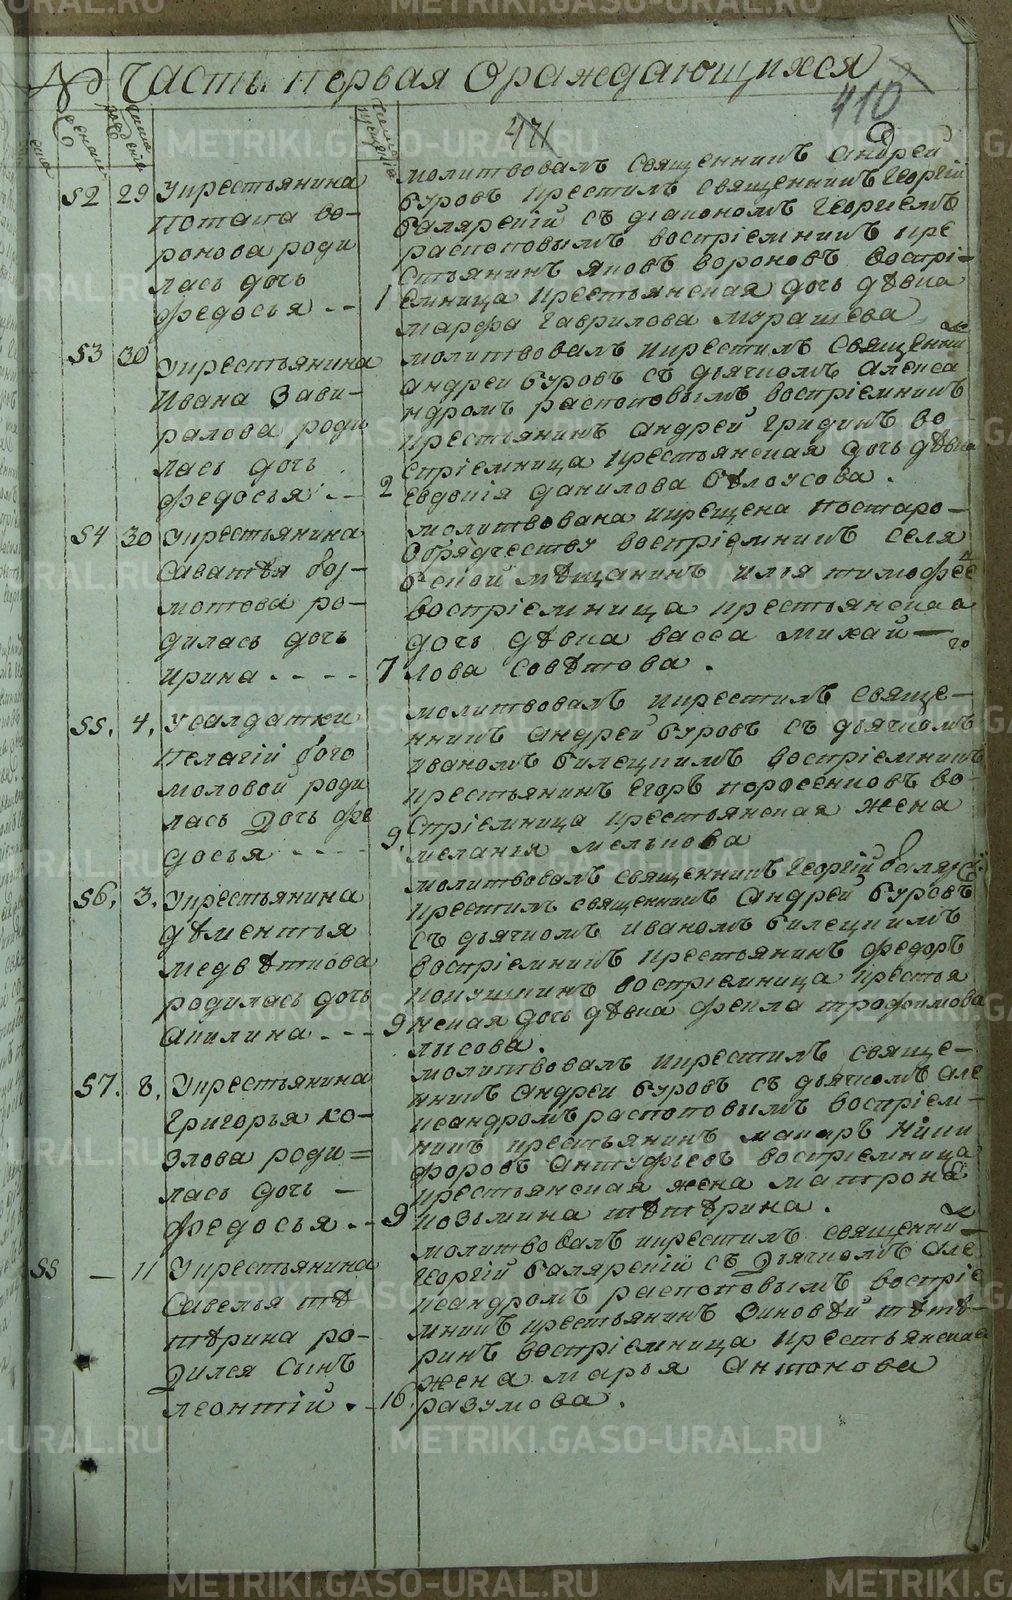 METRIKI.GASO-URAL.RU
№ Часть первая Ораждающихся
410
471
52 29 Укрестьянина
Потапа во-
ронова роди
лась дочь
Федосья -- 1
молитвовалъ священникъ Андрей
Буровъ крестилъ священникъ Георгий
Балярский съ дiакономъ Георгиемъ
распоповымъ воспрiемникъ кре
стьянинъ Яковъ вороновъ воспрi-
емница крестьянская дочь дѣвка
марфа Гаврилова мурашева
53 30 Укрестьянина
Ивана Зави-
ралова роди
лась дочь
Федосья -- 2
молитвовалъ икрестилъ священник
Андрей Буровъ съ дьячкомъ Алекса
ндромъ распоповымъ воспрiемникъ
крестьянинъ Андрей Гридинъ во
спрiемница крестьянская дочь дѣвка
Евдокiя данилова бѣлоусова.
54 30 Укрестьянина
Саватѣя бол-
мотова ро-
дилась дочь
Ирина ---- 7
молитвована икрещена постаро-
обрядчеству воспрiемникъ селя
бской мѣщанинъ илья тимофѣе
воспрiемница крестьянская
дочь дѣвка васса михай-
лова совѣтова.
55. 4. Усалдатки
Пелагiй бого
моловой роди
лась Дочь фе
досья ---- 9.
молитвовалъ икрестилъ свяще-
нникъ Андрей Буровъ съ дьячкомъ
иваномъ билецкимъ воспрiемникъ
крестьянинъ Егоръ поросенковъ во-
спрiемница крестьянская жена
меланья мелькова
56. 3. Укрестьянина
дѣментья
медвѣткова
родилась дочь
Акилина --- 9
молитвовалъ священникъ Георгiй баляр
крестилъ священникъ Андрей Буровъ
съ дьячкомъ иваномъ билецкимъ
воспрiемникъ крестьянинъ федоръ
кокушкинъ воспрiемница крестья
нская дочь дѣвка фекла трофимова
лысова.
57. 8. Укрестьянина
Григорья ко-
злова роди=
лась дочь -
Федосья -- 9
молитвовалъ икрестилъ свяще-
нникъ Андрей Буровъ съ дьячкомъ але
ксандромъ распоповымъ воспрiем-
никъ крестьянинъ макаръ Ники
форовъ Антуфьевъ воспрiемница
крестьянская жена матрона
козьмина тѣтѣрина.
55 — 11 Укрестьянина
Савелья тѣ
тѣрина ро-
дился сынъ
леонтiй . - 16.
молитвовалъ икрестилъ священни-
Георгiй Балярскiй съ Дьячкомъ але
ксандромъ распоповымъ воспрiе
мникъ крестьянинъ Зиновѣй тѣтѣ-
ринъ воспрiемница крестьянская
жена марья Антонова
разумова.